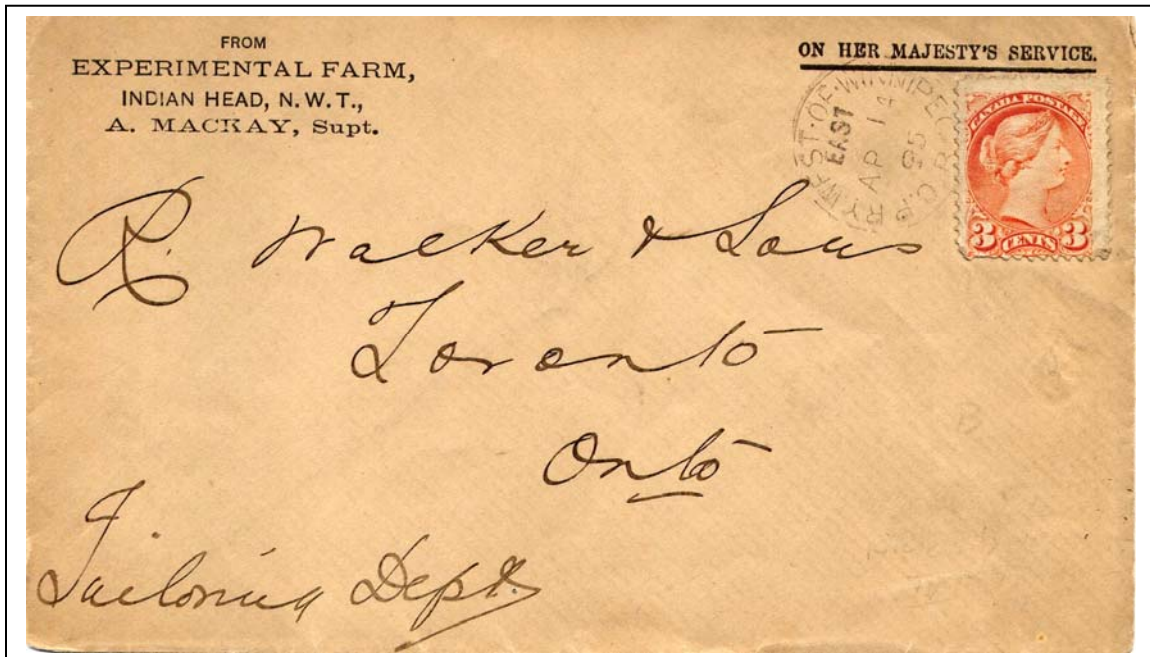 FROM
EXPERIMENTAL FARM,
INDIAN HEAD, N.W.T.,
A. MACKAY, Supt.
ON HER MAJESTY'S SERVICE.
WEST·OF·WINNIPEG
EAST
AP 14
95
CANADA POSTAGE
3 CENTS 3
R. Walker & Sons
Toronto
Onto
Tailoring Dept.